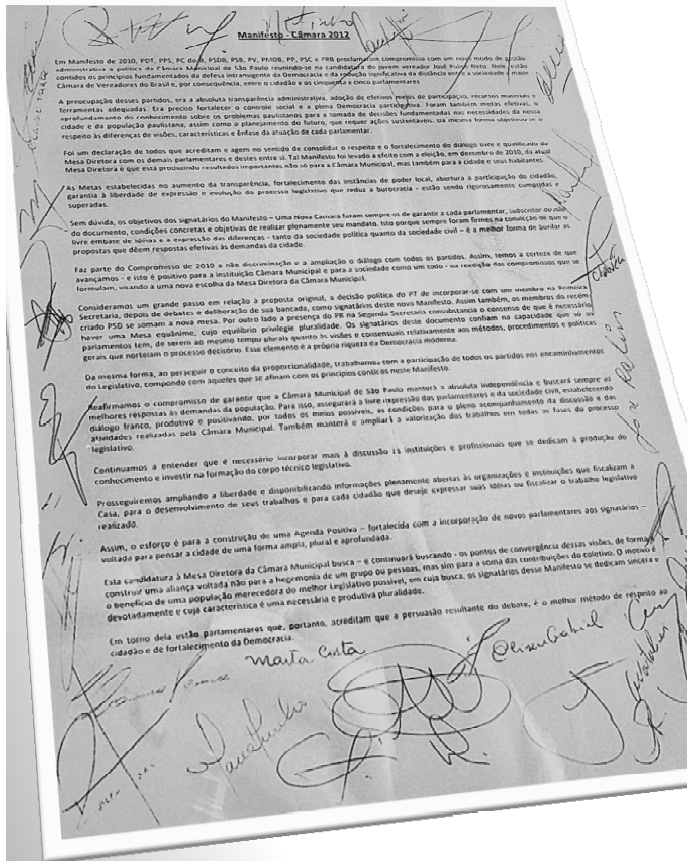 Manifesto - Câmara 2012
Em Manifesto de 2010, PDT, PPS, PC do B, PSDB, PSB, PV, PMDB, PP, PSC e PRB proclamaram compromisso com um novo modo de gestão
administrativa e política da Câmara Municipal de São Paulo reunindo-se na candidatura do jovem vereador José Police Neto. Nele, estão
contidos os princípios fundamentados da defesa intransigente da Democracia e da redução significativa da distância entre a sociedade e maior
Câmara de Vereadores do Brasil e, por consequência, entre o cidadão e os cinquenta e cinco parlamentares
A preocupação desses partidos, era a absoluta transparência administrativa, adoção de efetivos meios de participação, recursos materiais e
ferramentas adequadas. Era preciso fortalecer o controle social e a plena Democracia participativa. Foram também metas efetivas, o
aprofundamento do conhecimento sobre os problemas paulistanos para a tomada de decisões fundamentadas nas necessidades da nossa
cidade e da população paulistana, assim como o planejamento do futuro, que requer ações sustentáveis. Da mesma forma objetivou-se o
respeito às diferenças de visões, características e ênfase da atuação de cada parlamentar.
Foi um declaração de todos que acreditam e agem no sentido de consolidar o respeito e o fortalecimento do diálogo livre e qualificado da
Mesa Diretora com os demais parlamentares e destes entre si. Tal Manifesto foi levado a efeito com a eleição, em dezembro de 2010, da atual
Mesa Diretora e que está produzindo resultados importantes não só para a Câmara Municipal, mas também para a cidade e seus habitantes.
As Metas estabelecidas no aumento da transparência, fortalecimento das instâncias de poder local, abertura à participação do cidadão,
garantia à liberdade de expressão e evolução do processo legislativo que reduz a burocracia - estão sendo rigorosamente cumpridas e
superadas.
Sem dúvida, os objetivos dos signatários do Manifesto – Uma Nova Câmara foram sempre os de garantir a cada parlamentar, subscritor ou não
do documento, condições concretas e objetivas de realizar plenamente seu mandato. Isto porque sempre foram firmes na convicção de que o
livre embate de idéias e a expressão das diferenças - tanto da sociedade política quanto da sociedade civil – é a melhor forma de burilar as
propostas que dêem respostas efetivas às demandas da cidade.
Faz parte do Compromisso de 2010 a não discriminação e a ampliação do diálogo com todos os partidos. Assim, temos a certeza de que
avançamos - e isto é positivo para a instituição Câmara Municipal e para a sociedade como um todo - na reedição dos compromissos que se
formulam, visando a uma nova escolha da Mesa Diretora da Câmara Municipal.
Consideramos um grande passo em relação à proposta original, a decisão política do PT de incorporar-se com um membro na Primeira
Secretaria, depois de debates e deliberação de sua bancada, como signatários deste novo Manifesto. Assim também, os membros do recém
criado PSD se somam a nova mesa. Por outro lado a presença do PR na Segunda Secretaria consubstancia o consenso de que é necessário
haver uma Mesa equânime, cujo equilíbrio privilegie pluralidade. Os signatários deste documento confiam na capacidade que só os
parlamentos tem, de serem ao mesmo tempo plurais quanto às visões e consensuais relativamente aos métodos, procedimentos e políticas
gerais que norteiam o processo decisório. Esse elemento é a própria riqueza da Democracia moderna.
Da mesma forma, ao perseguir o conceito da proporcionalidade, trabalhamos com a participação de todos os partidos nos encaminhamentos
do Legislativo, compondo com aqueles que se afinam com os princípios contidos neste Manifesto.
Reafirmamos o compromisso de garantir que a Câmara Municipal de São Paulo manterá a absoluta independência e buscará sempre as
melhores respostas às demandas da população. Para isso, assegurará a livre impressão dos parlamentares e da sociedade civil, estabelecendo
diálogo franco, produtivo e positivando, por todos os meios possíveis, as condições para o pleno acompanhamento da discussão e das
atividades realizadas pela Câmara Municipal. Também manterá e ampliará a valorização dos trabalhos em todas as fases do processo
legislativo.
Continuamos a entender que é necessário incorporar mais à discussão as instituições e profissionais que se dedicam à produção do
conhecimento e investir na formação do corpo técnico legislativo.
Prosseguiremos ampliando a liberdade e disponibilizando informações plenamente abertas às organizações e instituições que fiscalizam a
Casa, para o desenvolvimento de seus trabalhos e para cada cidadão que deseje expressar suas idéias ou fiscalizar o trabalho legislativo
realizado.
Assim, o esforço é para a construção de uma Agenda Positiva – fortalecida com a incorporação de novos parlamentares aos signatários –
voltada para pensar a cidade de uma forma ampla, plural e aprofundada.
Esta candidatura à Mesa Diretora da Câmara Municipal busca – e continuará buscando - os pontos de convergência dessas visões, de forma a
construir uma aliança voltada não para a hegemonia de um grupo ou pessoas, mas sim para a soma das contribuições do coletivo. O motivo é
o benefício de uma população merecedora do melhor Legislativo possível, em cuja busca, os signatários desse Manifesto se dedicam sincera e
devotadamente e cuja característica é uma necessária e produtiva pluralidade.
Em torno dela estão parlamentares que, portanto, acreditam que a persuasão resultante do debate, é o melhor método de respeito ao
cidadão e de fortalecimento da Democracia.
Marta Costa